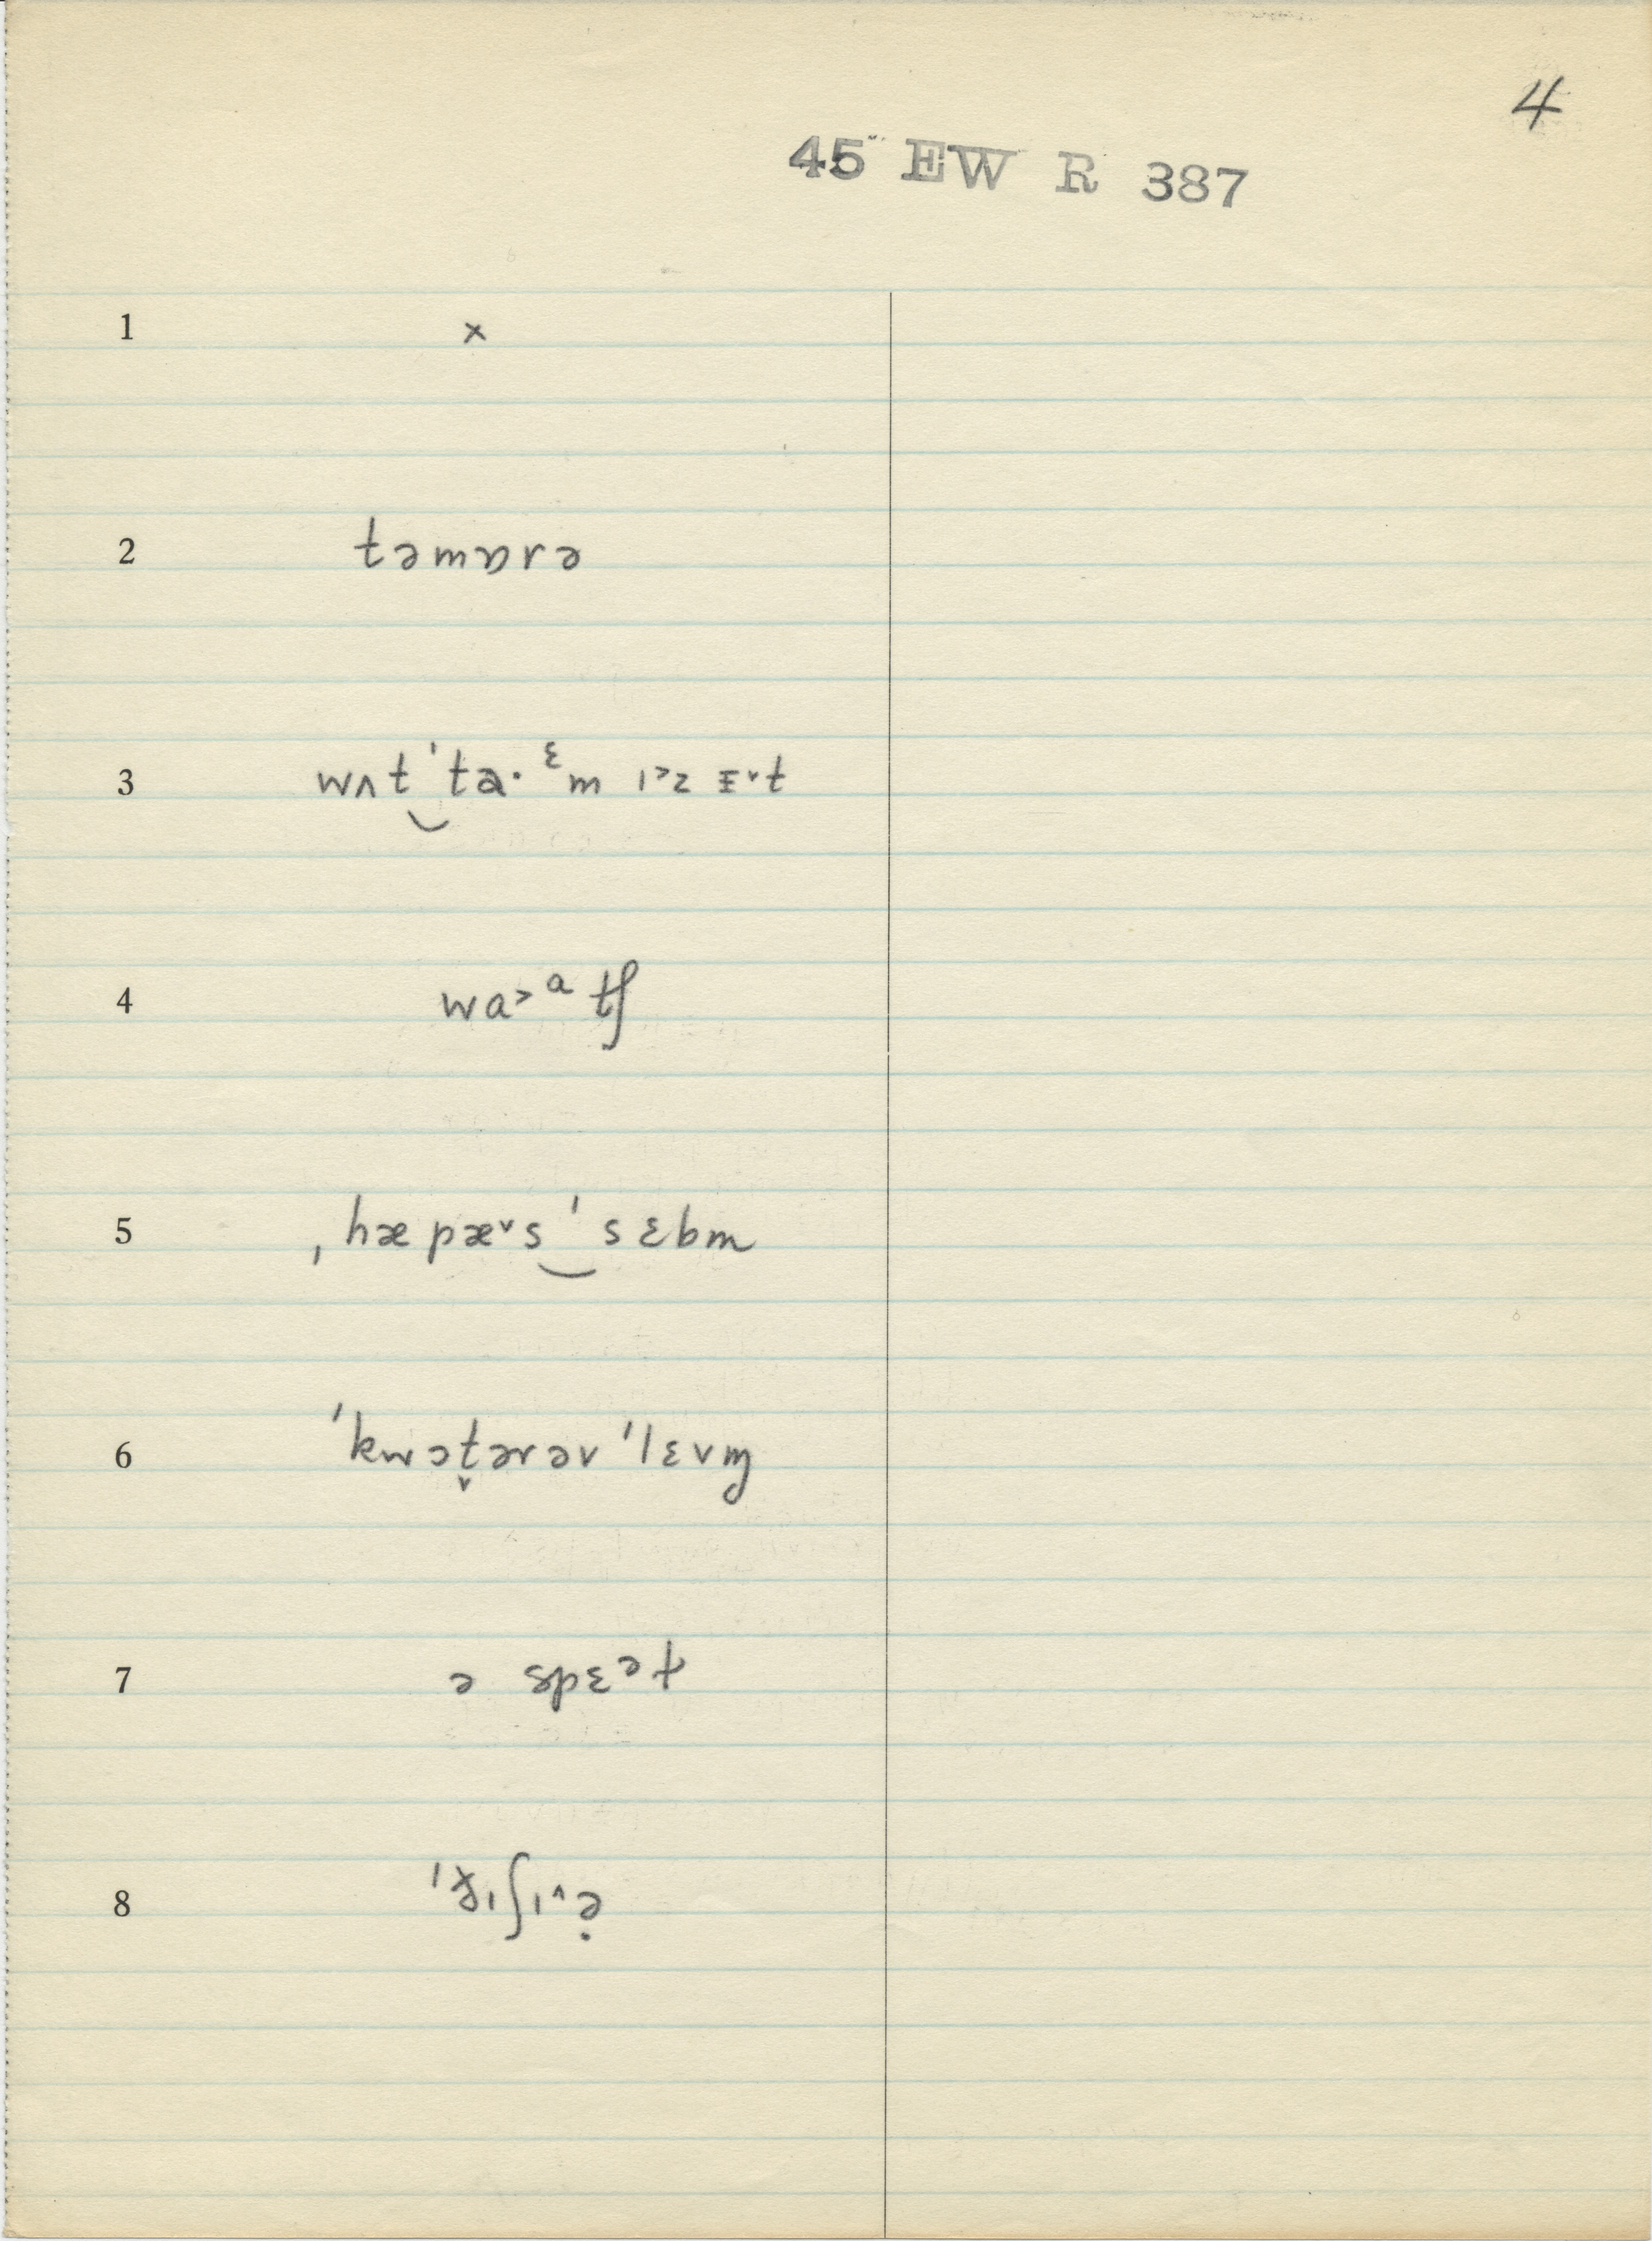 4
45 EW R 387
1 ×
2 təmɒrə
3 wʌt ˈta·ᵋm ɪ˃z ɪ̵˅t
4 wa˃ᵃ tʃ
5 ˌhæpæ˅s ˈsɛbm
6 ˈkwɔt̬ərəv ˈlɛvm̩
7 ə spɛᵊt
8 ˈt̵ɪʃɪ˄ə̣